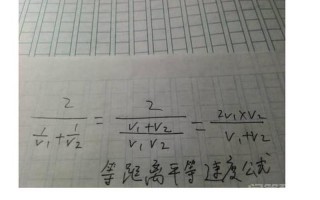 2/(1/v₁+1/v₂) = 2/((v₁+v₂)/(v₁v₂)) = 2v₁×v₂/(v₁+v₂)
等距离平等速度公式